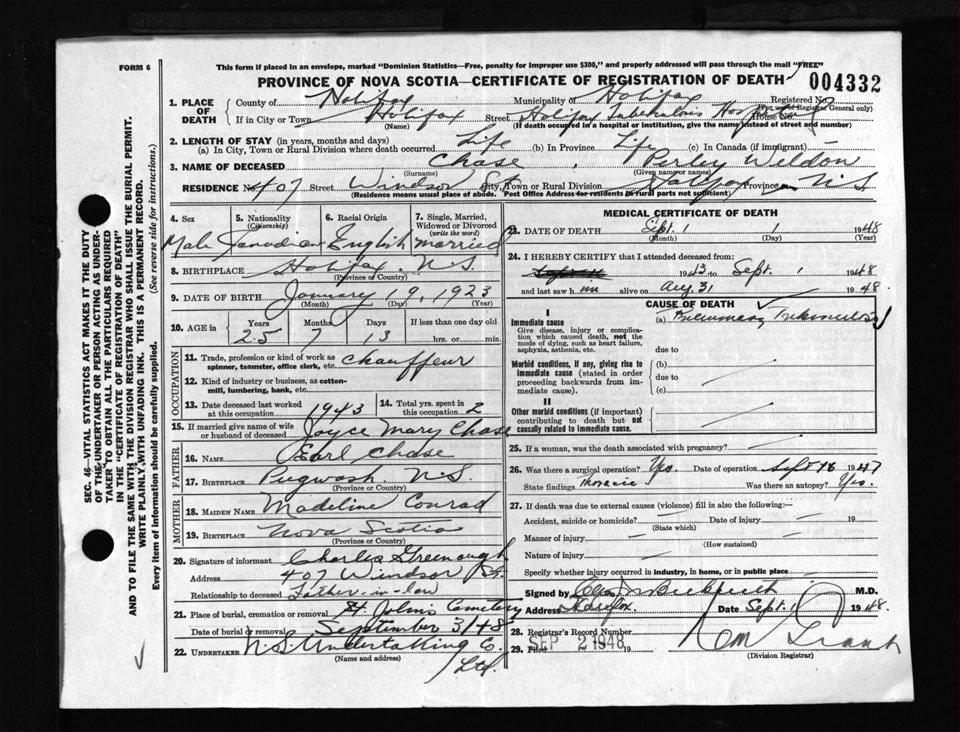 FORM 6
This form if placed in an envelope, marked "Dominion Statistics—Free, penalty for improper use $300," and properly addressed will pass through the mail "FREE"
PROVINCE OF NOVA SCOTIA—CERTIFICATE OF REGISTRATION OF DEATH
004332
1. PLACE OF DEATH County of Halifax Municipality of Halifax Registered No.
(For use of Registrar General only)
If in City or Town Halifax Street Halifax Tuberculosis Hospital House No.
(Name) (If death occurred in a hospital or institution, give the name instead of street and number)
2. LENGTH OF STAY (in years, months and days)
(a) In City, Town or Rural Division where death occurred Life (b) In Province Life (c) In Canada (if immigrant)
3. NAME OF DECEASED Chase, Perley Weldon
(Surname) (Given name or names)
RESIDENCE No. 407 Street Windsor St City, Town or Rural Division Halifax Province N.S
(Residence means usual place of abode. Post Office Address for residents in rural parts not sufficient)
4. Sex 5. Nationality (Citizenship) 6. Racial Origin 7. Single, Married, Widowed or Divorced (write the word)
Male Canadian English married
8. BIRTHPLACE Halifax N.S.
(Province or Country)
9. DATE OF BIRTH January 19, 1923
(Month) (Day) (Year)
10. AGE in Years Months Days If less than one day old
25 7 13 hrs. or min.
OCCUPATION
11. Trade, profession or kind of work as spinner, teamster, office clerk, etc. Chauffeur
12. Kind of industry or business, as cotton-mill, lumbering, bank, etc.
13. Date deceased last worked at this occupation 1943 14. Total yrs. spent in this occupation 2
15. If married give name of wife or husband of deceased Joyce Mary Chase
FATHER
16. Name Earl Chase
17. Birthplace Pugwash N.S.
(Province or Country)
MOTHER
18. MAIDEN NAME Madeline Conrad
19. BIRTHPLACE Nova Scotia
(Province or Country)
20. Signature of informant Charles Greenough
Address 407 Windsor St.
Relationship to deceased Father-in-law
21. Place of burial, cremation or removal St. John's Cemetery
Date of burial or removal September 3/48
22. UNDERTAKER N.S. Undertaking Co. Ltd.
(Name and address)
MEDICAL CERTIFICATE OF DEATH
23. DATE OF DEATH Sept. 1 1948
(Month) (Day) (Year)
24. I HEREBY CERTIFY that I attended deceased from:
1943 to Sept. 1 1948
and last saw him alive on Aug. 31 1948.
CAUSE OF DEATH
I
Immediate cause (a) Pulmonary Tuberculosis
Give disease, injury or complication which caused death, not the mode of dying, such as heart failure, asphyxia, asthenia, etc.
due to
Morbid conditions, if any, giving rise to immediate cause (stated in order proceeding backwards from immediate cause).
(b)
due to
(c)
II
Other morbid conditions (if important) contributing to death but not causally related to immediate cause.
25. If a woman, was the death associated with pregnancy?
26. Was there a surgical operation? Yes. Date of operation Sept 18 1947
State findings Thoracic Was there an autopsy? Yes.
27. If death was due to external causes (violence) fill in also the following:—
Accident, suicide or homicide? Date of injury 19
(State which)
Manner of injury
(How sustained)
Nature of injury
Specify whether injury occurred in industry, in home, or in public place
Signed by M.D.
Address Halifax. Date Sept. 1 1948.
28. Registrar's Record Number
29. Filed SEP 2 1948 19
(Division Registrar)
SEC. 46—VITAL STATISTICS ACT MAKES IT THE DUTY OF THE UNDERTAKER OR PERSON ACTING AS UNDERTAKER TO OBTAIN ALL THE PARTICULARS REQUIRED IN THE "CERTIFICATE OF REGISTRATION OF DEATH" AND TO FILE THE SAME WITH THE DIVISION REGISTRAR WHO SHALL ISSUE THE BURIAL PERMIT.
WRITE PLAINLY, WITH UNFADING INK. THIS IS A PERMANENT RECORD.
Every item of information should be carefully supplied. (See reverse side for instructions.)